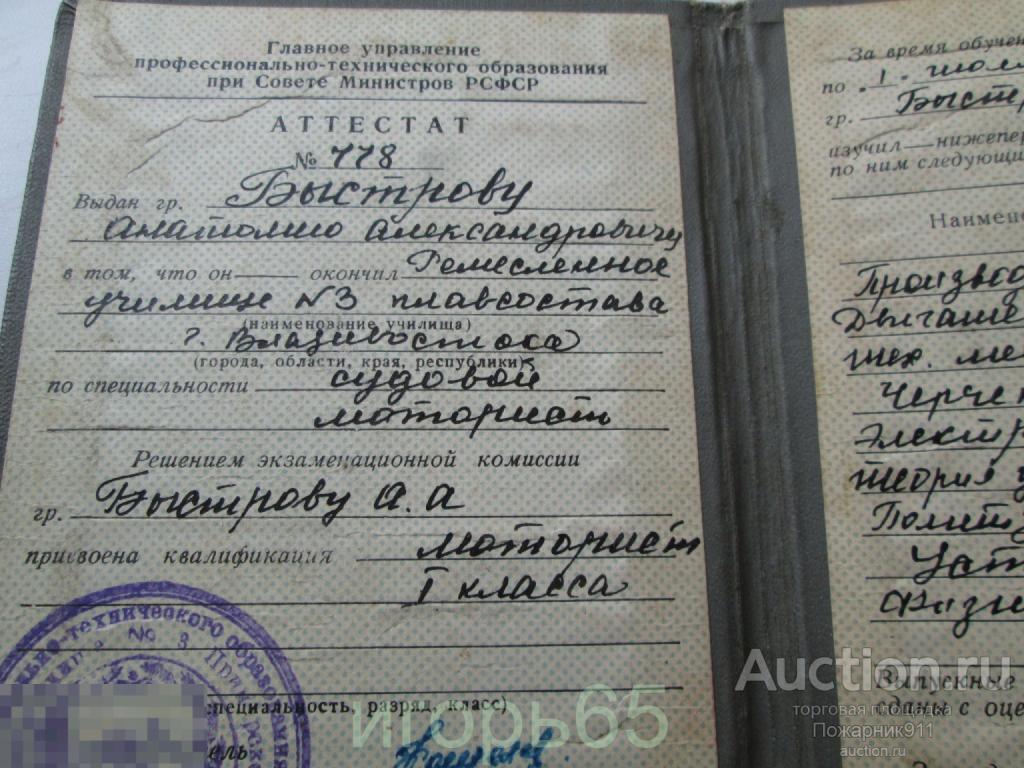 Главное управление
профессионально-технического образования
при Совете Министров РСФСР
АТТЕСТАТ
№ 778
Выдан гр. Быстрову
Анатолию Александровичу
в том, что он окончил Ремесленное
училище №3 плавсостава
(наименование училища)
г. Владивостока
(города, области, края, республики)
по специальности судовой
моторист
Решением экзаменационной комиссии
гр. Быстрову А.А
присвоена квалификация моторист
I класса
специальность, разряд, класс)
За время обучен
по 1.
гр. Быстр
изучил нижепер
по ним следующи
Наимено
Произвед
Двигате
тех. ме
Черчен
Электр
теория у
Полит
Уст
Физи
Выпускные
сданы с оце
Auction.ru
торговая площадка
Пожарник911
auction.ru
игорь65